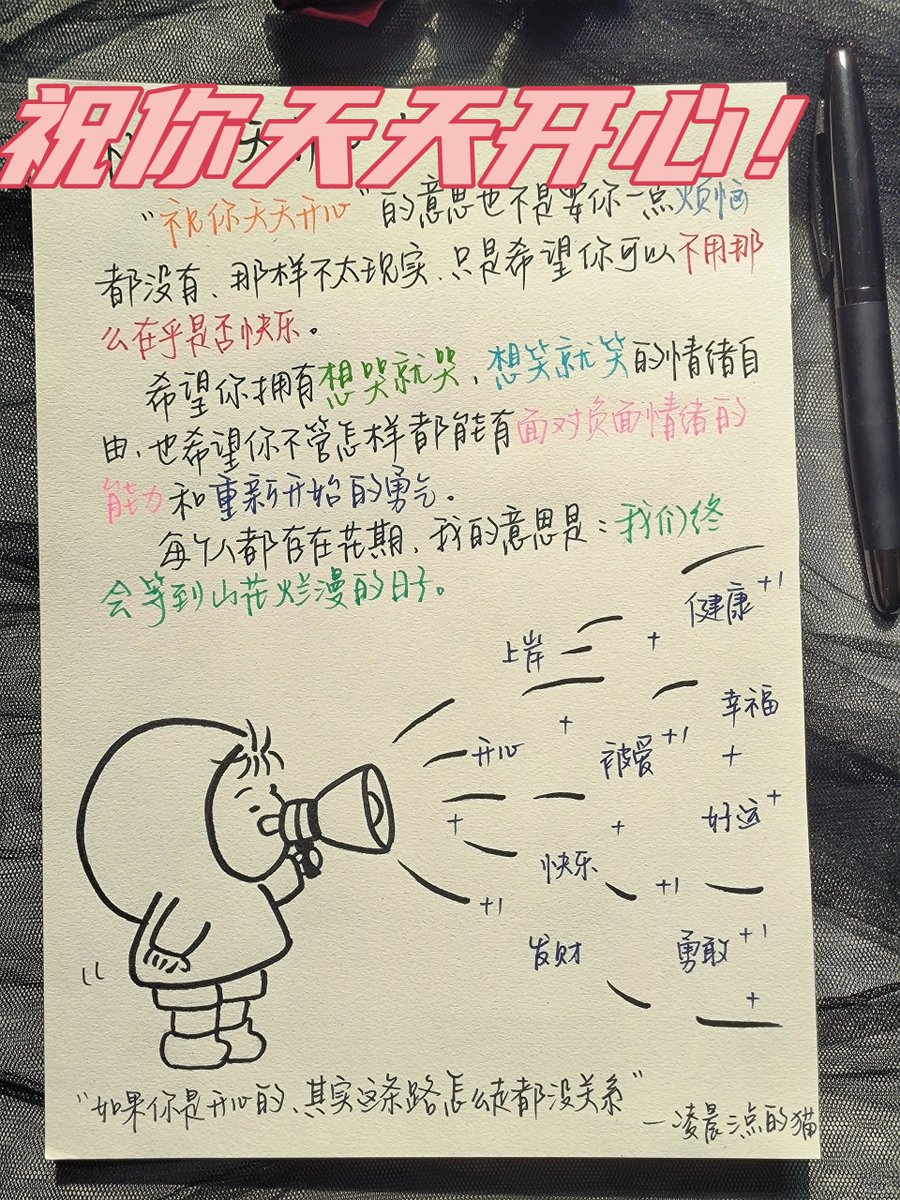 祝你天天开心!
“祝你天天开心”的意思也不是要你一点烦恼
都没有、那样不太现实、只是希望你可以不用那
么在乎是否快乐。
希望你拥有想哭就哭,想笑就笑的情绪自
由、也希望你不管怎样都能有面对负面情绪的
能力和重新开始的勇气。
每个人都存在花期、我的意思是:我们终
会等到山花烂漫的日子。
健康+1
上岸
+
幸福
+
开心
被爱+1
+
好运+
+
+
快乐
+1
+1
发财
勇敢+1
+
“如果你是开心的、其实这条路怎么走都没关系”
—凌晨三点的猫